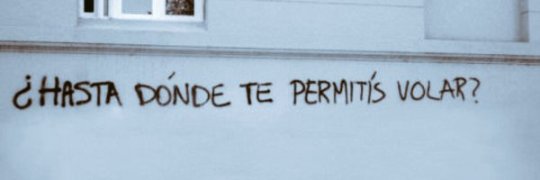 ¿HASTA DÓNDE TE PERMITÍS VOLAR?